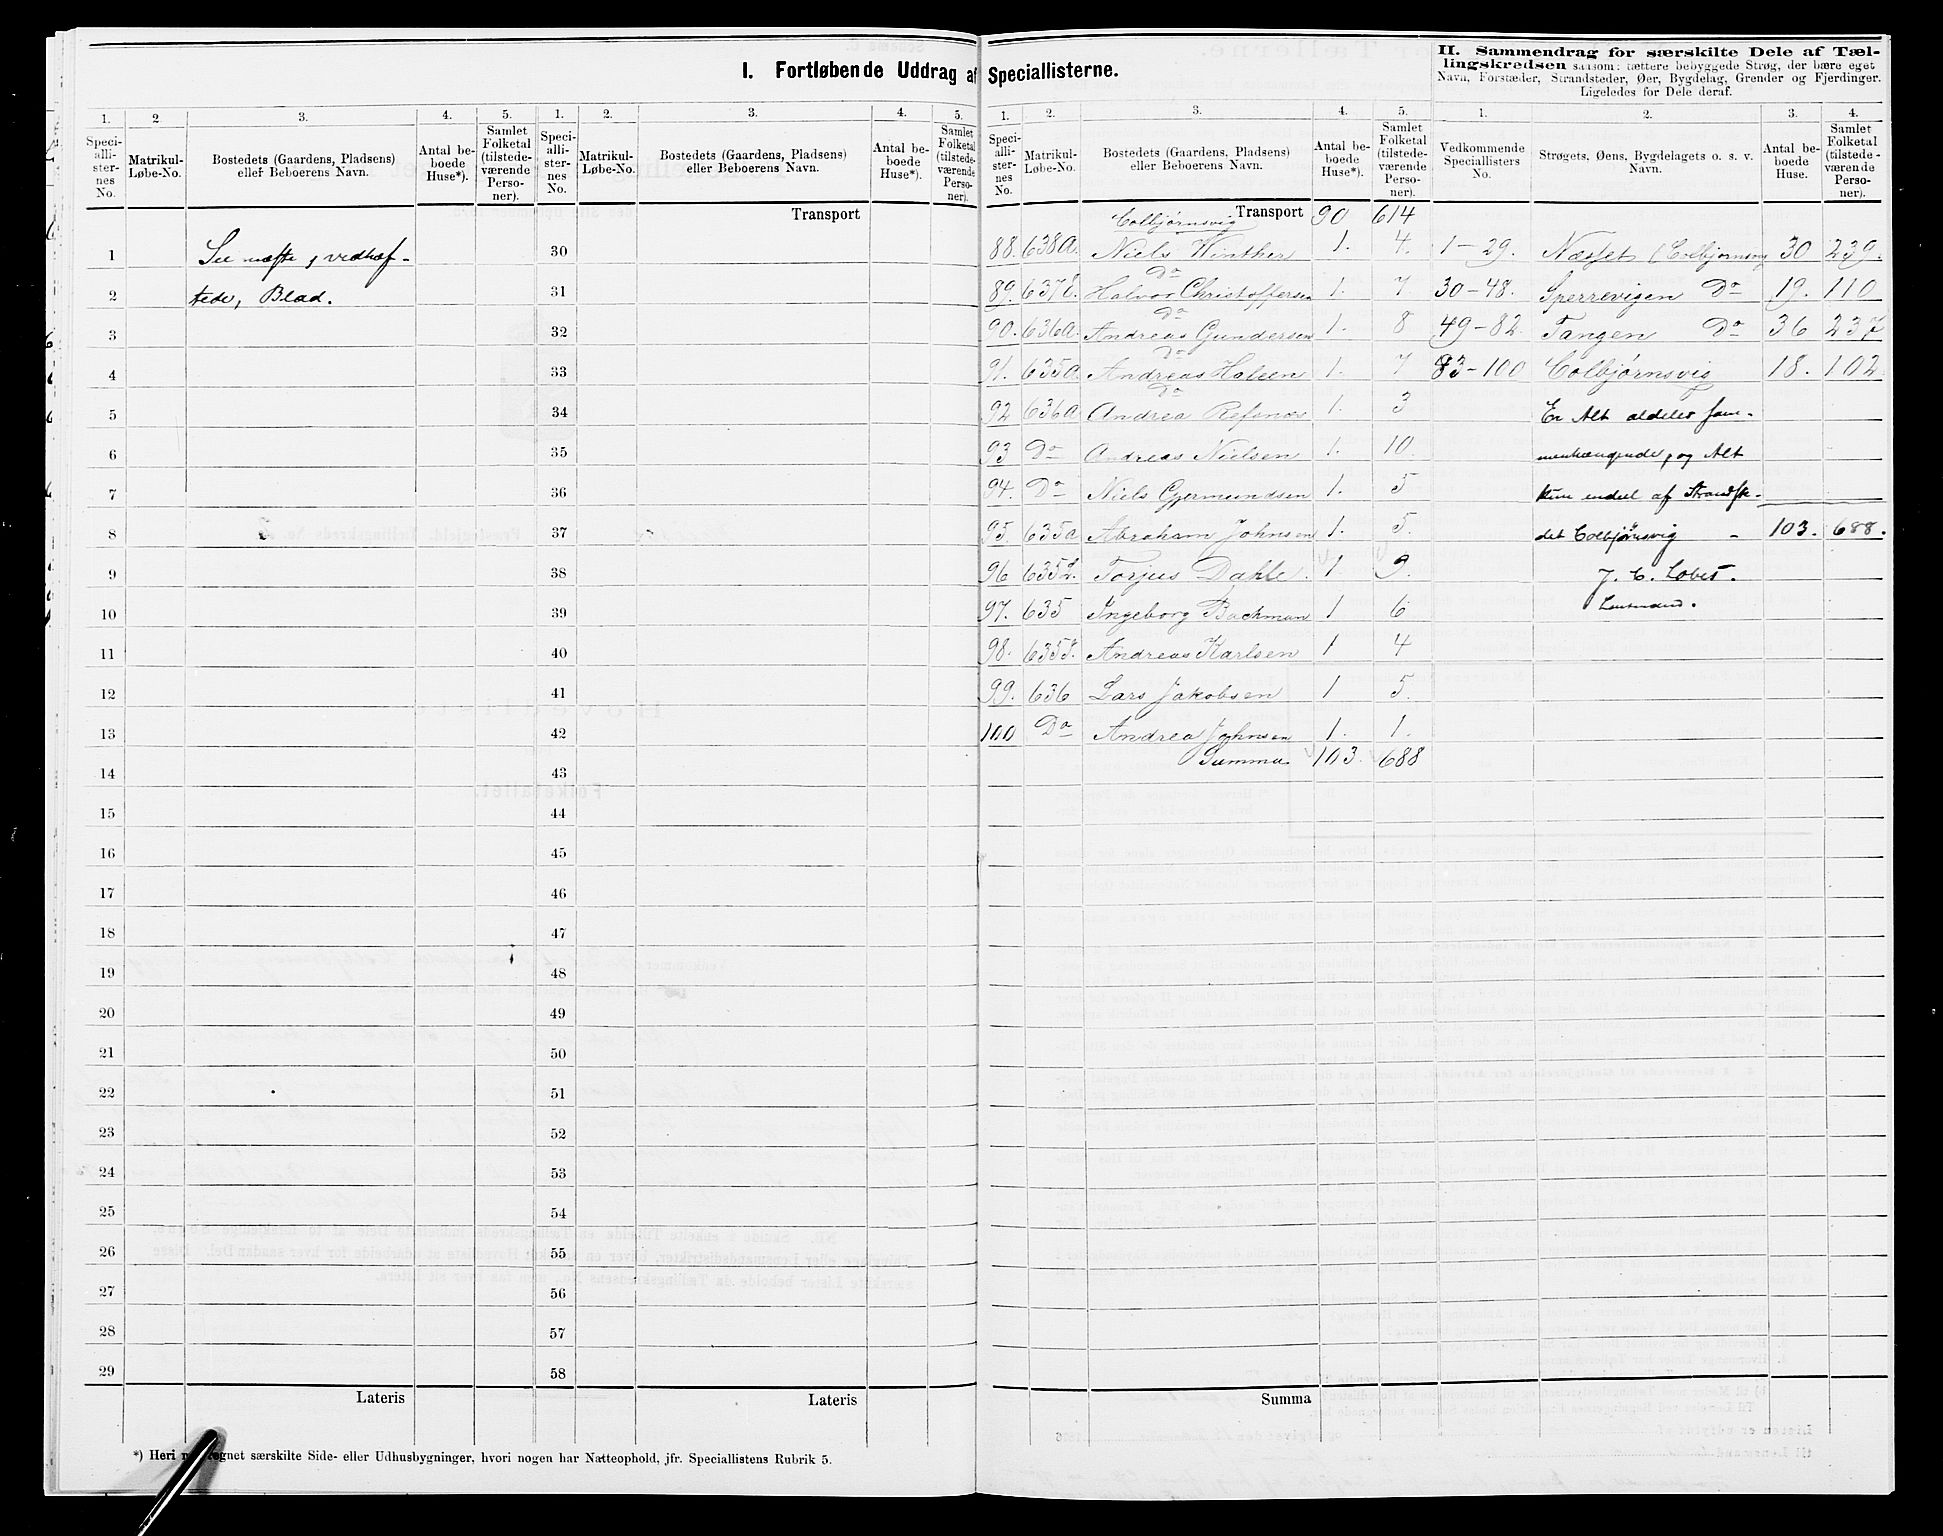 I. Fortløbende Uddrag af Speciallisterne.
II. Sammendrag for særskilte Dele af Tæl-
lingskredsen saasom: tættere bebyggede Strøg, der bære eget
Navn, Forstæder, Strandsteder, Øer, Bygdelag, Grender og Fjerdinger.
Ligeledes for Dele deraf.
1. 2 3. 4. 5. 1. 2. 3. 4. 5.
Speci-alli-ster-nes No. Matrikul-Løbe-No. Bostedets (Gaardens, Pladsens) eller Beboerens Navn. Antal be-boede Huse*). Samlet Folketal (tilstede-værende Perso-ner).
Speci-alli-ster-nes No. Matrikul-Løbe-No. Bostedets (Gaardens, Pladsens) eller Beboerens Navn. Antal be-boede Huse*). Samlet Folketal (tilstede-værende Perso-ner).
Transport
1 See næste, vedhæf- 30
2 tede, Blad. 31
3 32
4 33
5 34
6 35
7 36
8 37
9 38
10 39
11 40
12 41
13 42
14 43
15 44
16 45
17 46
18 47
19 48
20 49
21 50
22 51
23 52
24 53
25 54
26 55
27 56
28 57
29 58
Lateris Lateris
*) Heri regnet særskilte Side- eller Udhusbygninger, hvori nogen har Natteophold, jfr. Speciallistens Rubrik 5.
1. 2. 3. 4. 5.
Speci-alli-ster-nes No. Matrikul-Løbe-No. Bostedets (Gaardens, Pladsens) eller Beboerens Navn. Antal be-boede Huse*). Samlet Folketal (tilstede-værende Perso-ner).
Transport 90 614
Colbjørnsvig
88. 638a. Niels Winther 1. 4.
Do
89. 637 Halvor Christoffersen 1. 7
Do
90. 636a. Andreas Gundersen 1. 8
Do
91. 635a. Andreas Halsen 1. 7
Do
92 636a Andrea Refsnæs 1. 3
93 Do Andreas Nielsen 1. 10.
94. Do Niels Gjermundsen 1. 5
95. 635a Abraham Johnsen 1. 5.
96 635 Torjus Dahle. 1 9.
97. 635 Ingeborg Backman 1 6
98. 635 Andreas Karlsen 1 4
99. 636 Lars Jakobsen 1 5.
100 Do Andrea Johnsen 1. 1.
Summa 103. 688
Summa
1. 2. 3. 4.
Vedkommende Speciallisters No. Strøgets, Øens, Bygdelagets o. s. v. Navn. Antal be-boede Huse. Samlet Folketal (tilstede-værende Perso-ner).
1-29. Næsset (Colbjørnsvig 30 239.
30-48. Sperrevigen Do 19. 110
49-82. Tangen Do 36 237
83-100 Colbjørnsvig 18. 102
Er Alt aldeles sam-
menhængende, og Alt
kun endeel af Strandste-
det Colbjørnsvig - 103. 688.
Lensmand.